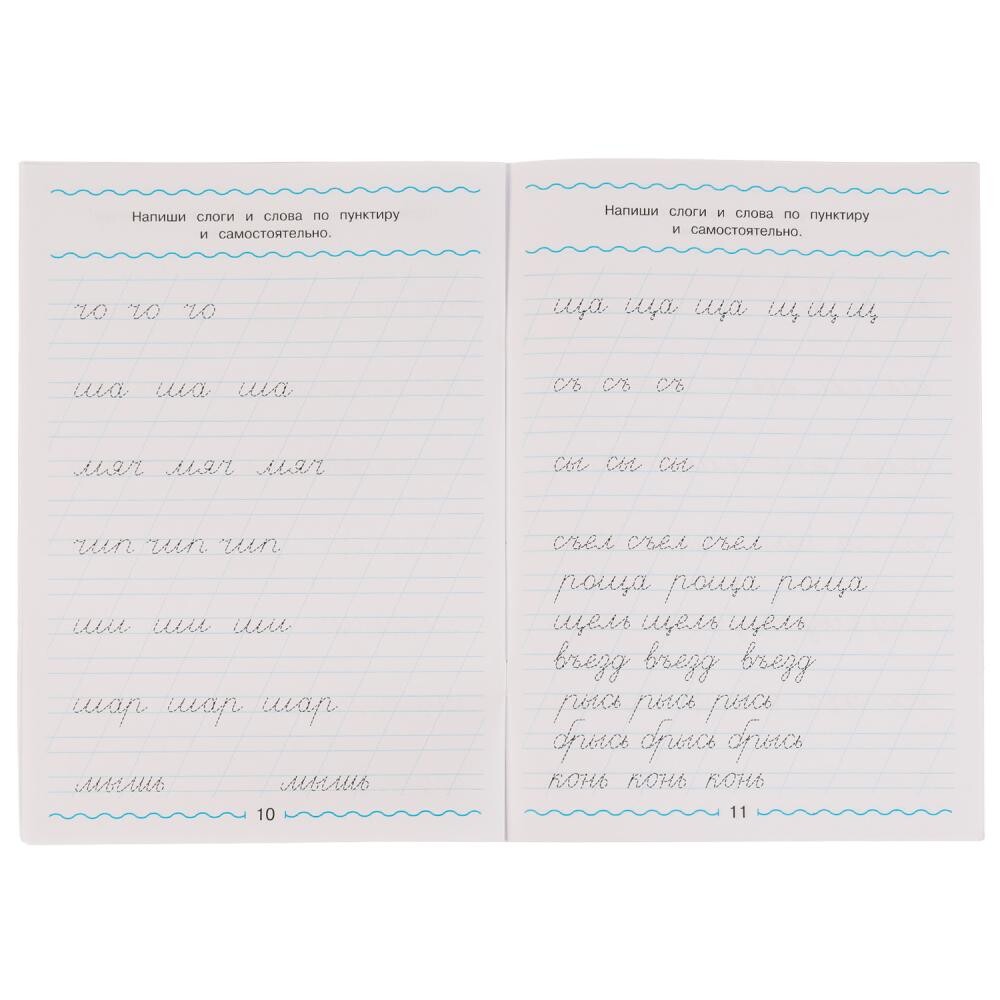 Напиши слоги и слова по пунктиру
и самостоятельно.
чо чо чо
ша ша ша
мяч мяч мяч
чип чип чип
ши ши ши
шар шар шар
мышь мышь
10
Напиши слоги и слова по пунктиру
и самостоятельно.
ща ща ща щ щ щ
съ съ съ
сы сы сы
съел съел съел
роща роща роща
щель щель щель
въезд въезд въезд
рысь рысь рысь
брысь брысь брысь
конь конь конь
11